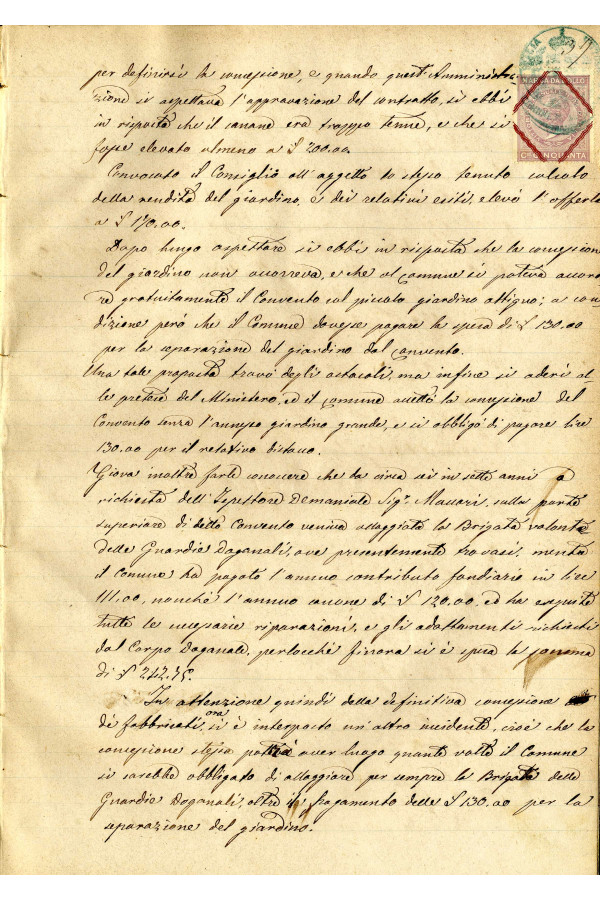 MARCA DA BOLLO
CMI CINQUANTA
per definirsi la concessione, e quando quest'Amministra-
zione si aspettava l'approvazione del contratto, si ebbe
in risposta che il canone era troppo tenue, e che si
fosse elevato almeno a £ 200.00.
Convocato il Consiglio all'oggetto lo stesso tenuto calcolo
della rendita del giardino, e dei relativi esiti, elevò l'offerta
a £ 170.00.
Dopo lungo aspettare si ebbe in risposta che la concessione
del giardino non occorreva, e che al comune si poteva accorda-
re gratuitamente il Convento col piccolo giardino attiguo; a con-
dizione però che il Comune dovesse pagare la spesa di £ 130.00
per la separazione del giardino dal convento.
Una tale proposta trovò degli ostacoli, ma infine si aderì al-
le pretese del Ministero, ed il comune accettò la concessione del
Convento senza l'annesso giardino grande, e si obbligò di pagare lire
130.00 per il relativo distacco.
Giova inoltre farle conoscere che da circa sei in sette anni a
richiesta dell'Ispettore Demaniale Sigr. Macari, sulla parte
superiore di detto Convento veniva alloggiata la Brigata volante
delle Guardie Doganali, ove presentemente trovasi, mentre
il Comune ha pagato l'annuo contributo fondiario in lire
111.00, nonchè l'annuo canone di £ 120.00, ed ha eseguite
tutte le necessarie riparazioni, e gli adattamenti richiesti
dal Corpo Doganale, perlocchè finora si è spesa la somma
di £ 242.75.
In attenzione quindi della definitiva concessione
dè fabbricati, ora si è interposto un'altro incidente, cioè che la
concessione stessa potrà aver luogo quante volte il Comune
si sarebbe obbligato di alloggiare per sempre la Brigata delle
Guardie Doganali, oltre il pagamento delle £ 130.00 per la
separazione del giardino.